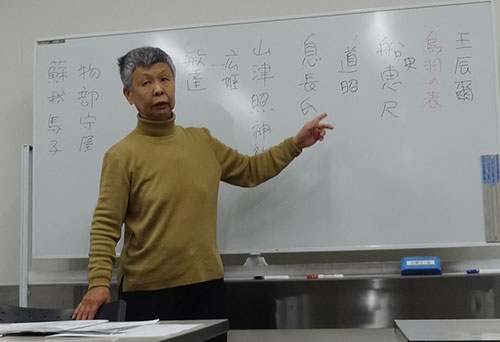 王辰爾
烏羽の表
船史恵尺
道昭
息長氏
山津照神社
広姫
敏達
物部守屋
蘇我馬子